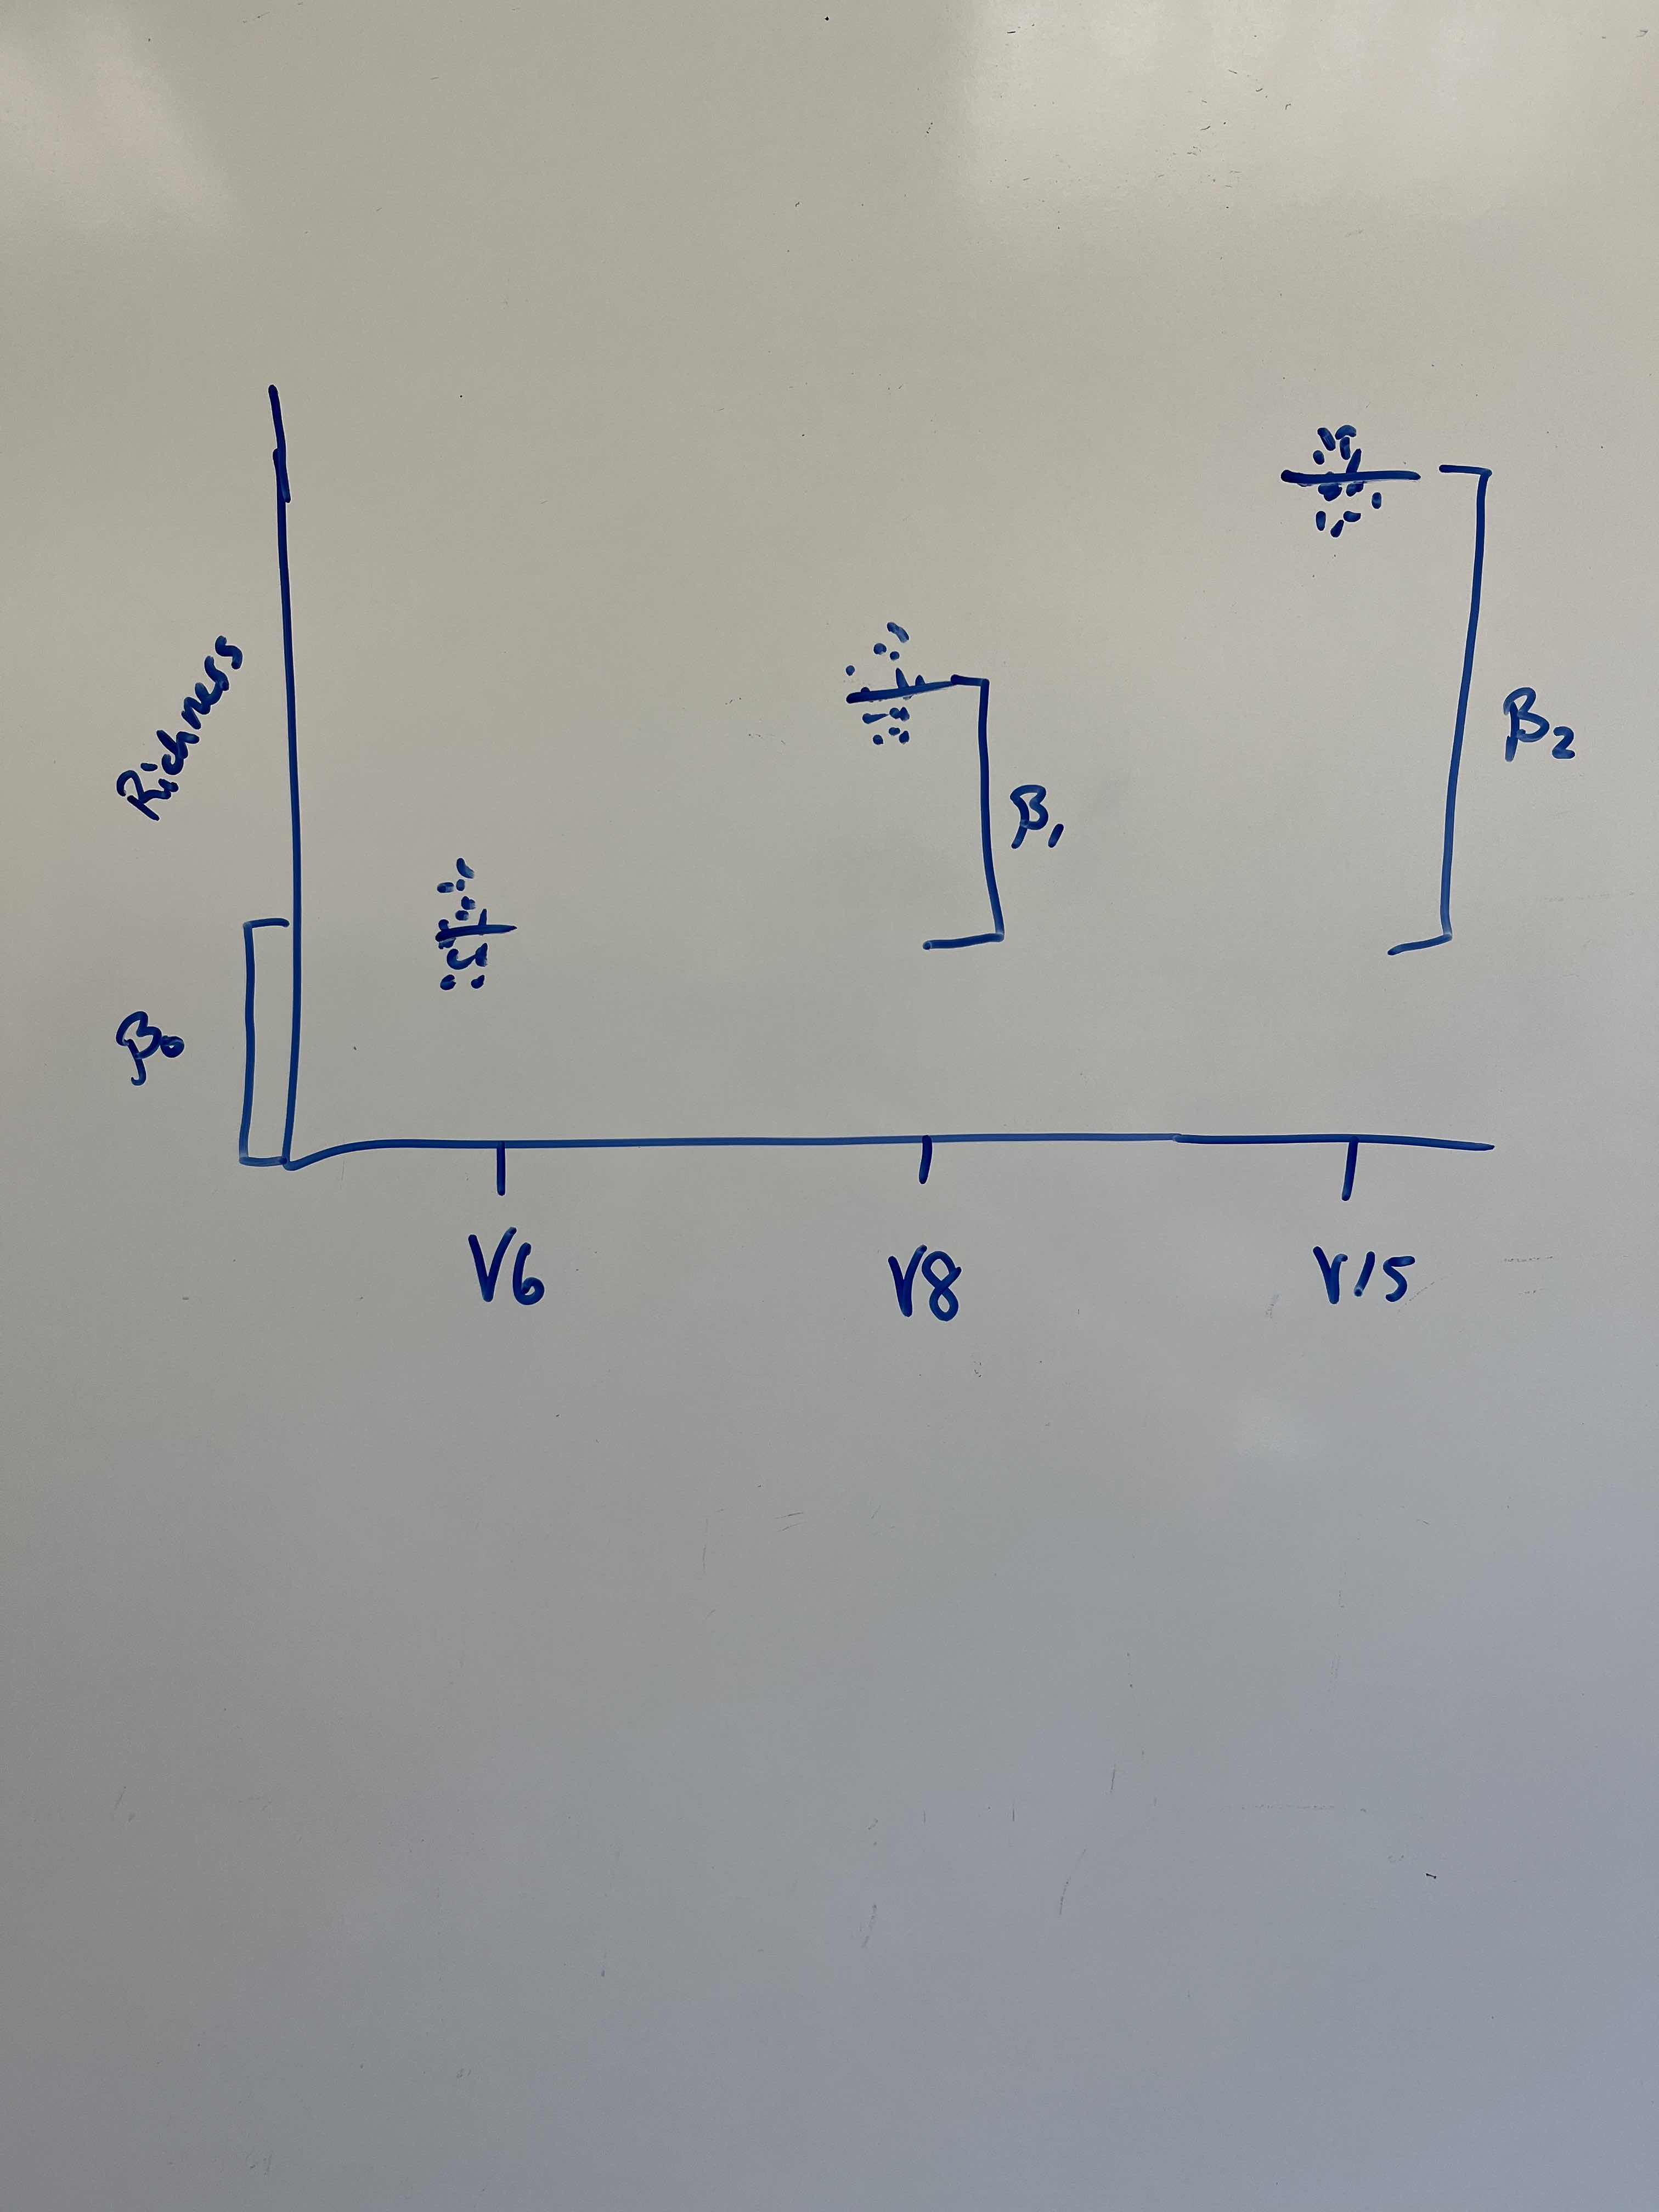 Richness
β₂
β₁
β₀
V6 V8 V15